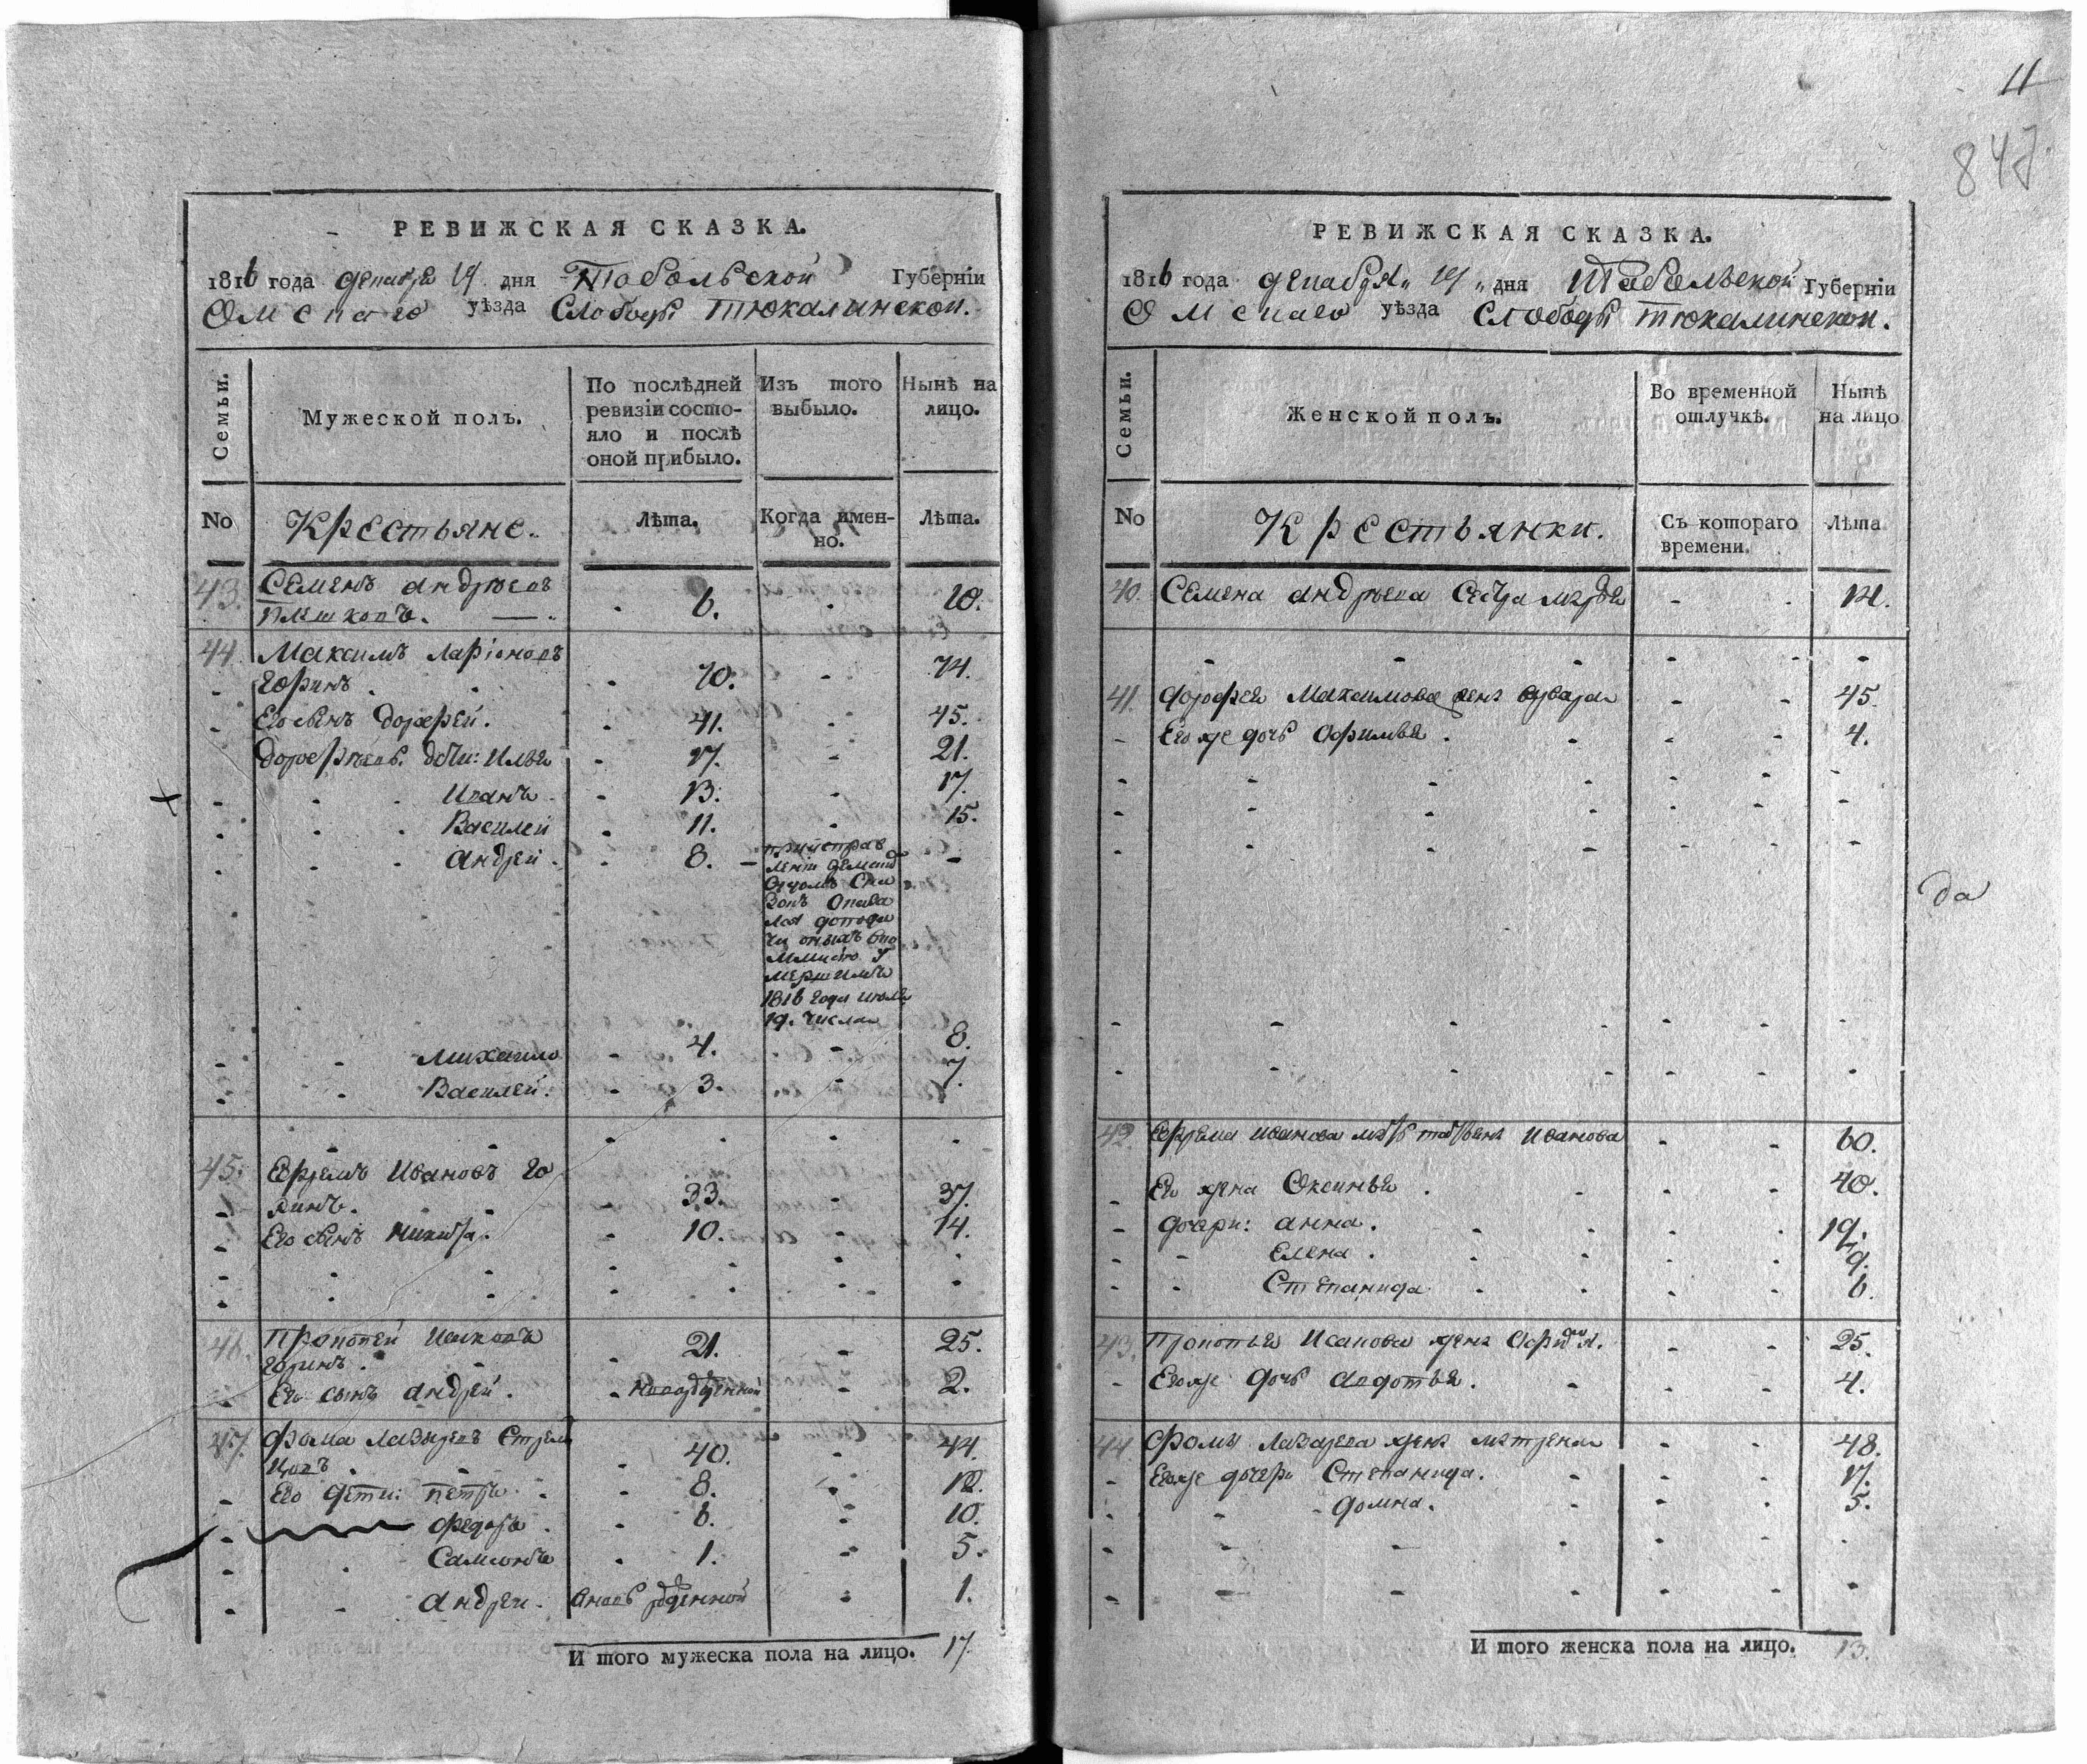 РЕВИЖСКАЯ СКАЗКА.
1816 года декабря 19 дня Тобольской Губерніи
Омскаго уѣзда Слободы Тюкалинской.
Семьи.
Мужеской полъ.
По послѣдней ревизіи состо-
яло и послѣ
оной прибыло.
Изъ того
выбыло.
Нынѣ на
лицо.
No
Крестьяне.
Лѣта.
Когда имен-
но.
Лѣта.
43. Семенъ Андрѣевъ
6. 10.
44. Максимъ Ларіоновъ
Горинъ. 70. 74.
Его сынъ Дорофей. 41. 45.
Дорофѣевы дѣти: Илья 17. 21.
Иванъ 13. 17.
Василей 11. 15.
Андрей 8.
1816 года июля
19. числа
Михаило 4. 8.
Василей. 3. 7.
45. Ефремъ Ивановъ Го
ринъ. 33. 37.
Его сынъ Никита. 10. 14.
46. Прокопей Исаковъ
Горинъ. 21. 25.
Его сынъ Андрей. новорожденной 2.
47. Фома Лазаревъ Стрель
цовъ 40. 44.
Его дѣти: Петръ 8. 12.
Федоръ 6. 10.
Самсонъ 1. 5.
Андрей. вновь рожденной 1.
И того мужеска пола на лицо. 17.
11
847
РЕВИЖСКАЯ СКАЗКА.
1816 года декабря 19 дня Тобольской Губерніи
Омскаго уѣзда Слободы Тюкалинской.
Семьи.
Женской полъ.
Во временной
отлучкѣ.
Нынѣ
на лицо
No
Крестьянки.
Съ котораго
времени.
Лѣта
40. Семена Андрѣева сестра Марья 14.
41. Дорофея Максимова жена Варвара 45.
Его же дочь Афимья. 4.
да
42. Ефрема Иванова мать Татьяна Иванова 60.
Его жена Оксинья. 40.
Дочери: Анна. 19.
Елена. 9.
Степанида 6.
43. Прокопья Исакова жена 25.
Его же дочь Авдотья. 4.
44. Фомы Лазарева жена Матрена 48.
Его же дочери Степанида. 17.
Домна. 5.
И того женска пола на лицо. 13.